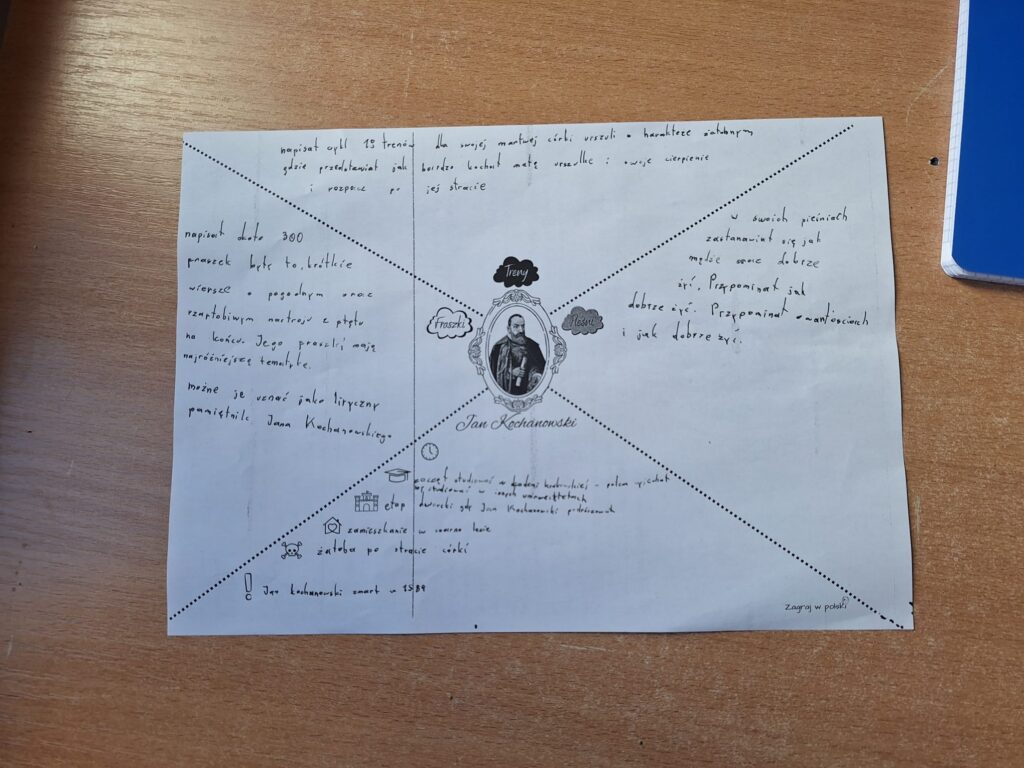 napisał cykl 19 trenów dla swojej martwej córki urszuli o harakterze żałobnym
gdzie przedstawiał jak bardzo kochał małą urszulkę i swoje cierpienie
i rozpacz po jej stracie
napisał około 300
praszek były to krótkie
wiersze o pogodnym oraz
rzartobiwym nastroju z
na końcu. Jego praszki mają
najróżniejszę tematykę.
możne je uznać jako liryczny
pamiętnik Jana Kochanowskiego
Treny
Fraszki
Pieśni
w swoich pieśniach
zastanawiał się jak
mądże oraz dobrze
żyć. Przypominał jak
dobrze żyć. Przypominał o wartościach
i jak dobrze żyć.
Jan Kochanowski
zaczął studiować w - potem wyjechał
studiować w innych uniwersytetach
etap dworski gdy Jan Kochanowski podróżował
zamieszkanie w czarno lesie
żałoba po stracie córki
Jan kochanowski zmarł w 1584
Zagraj w polski